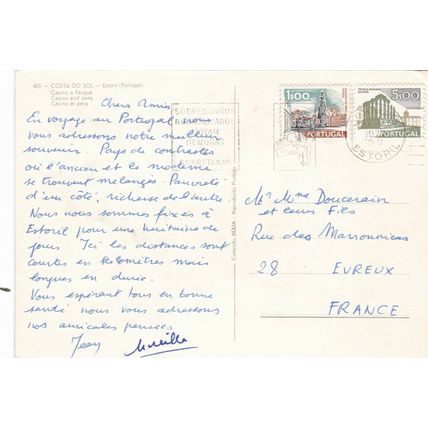 400 - COSTA DO SOL - Estoril (Portugal)
Casino e Parque
Casino and park
Casino et parc
Chers Amis
En voyage au Portugal nous
vous adressons notre meilleur
souvenir. Pays de contrastes
où l'ancien et le moderne
se trouvent mélangés. Pauvreté
d'un côté, richesse de l'autre
Nous nous sommes fixés à
Estoril pour une huitaine de
jours. Ici les distances sont
courtes en kilomètres mais
longues en durée.
Vous espérant tous en bonne
santé nous vous adressons
nos amicales pensées
Jean Mireille
SOBRESCRITOS
DEMORAS
SOBRETAXAS
1$00
PORTUGAL
5$00
PORTUGAL
ESTORIL
Colecção DÚLIA
Mr Mme Doucerain
et leurs Fils
Rue des Marronniers
28 EVREUX
FRANCE